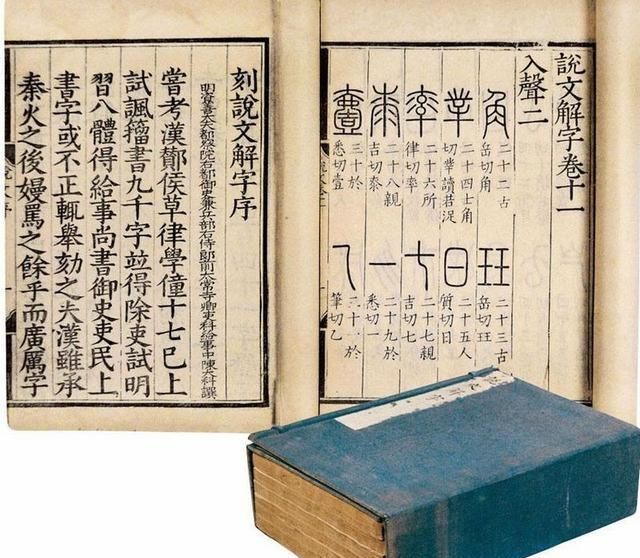 說文解字卷十一
入聲二
角
二十二古
岳切角
玨
二十三古
岳切玨
丵
二十四士角
切丵讀若浞
日
二十五人
質切日
率
二十六所
律切率
七
二十七親
吉切七
桼
二十八親
吉切桼
一
二十九於
悉切一
壹
三十於
悉切壹
乙
三十一於
筆切乙
刻說文解字序
明資善大夫都察院右都御史兼兵部右侍郎前太常寺卿吏科給事中陳大科撰
嘗考漢酇侯草律學僮十七巳上
試諷籀書九千字並得除吏試明
習八體得給事尚書御史吏民上
書字或不正輒舉劾之夫漢雖承
秦火之後嫚罵之餘乎而廣厲字